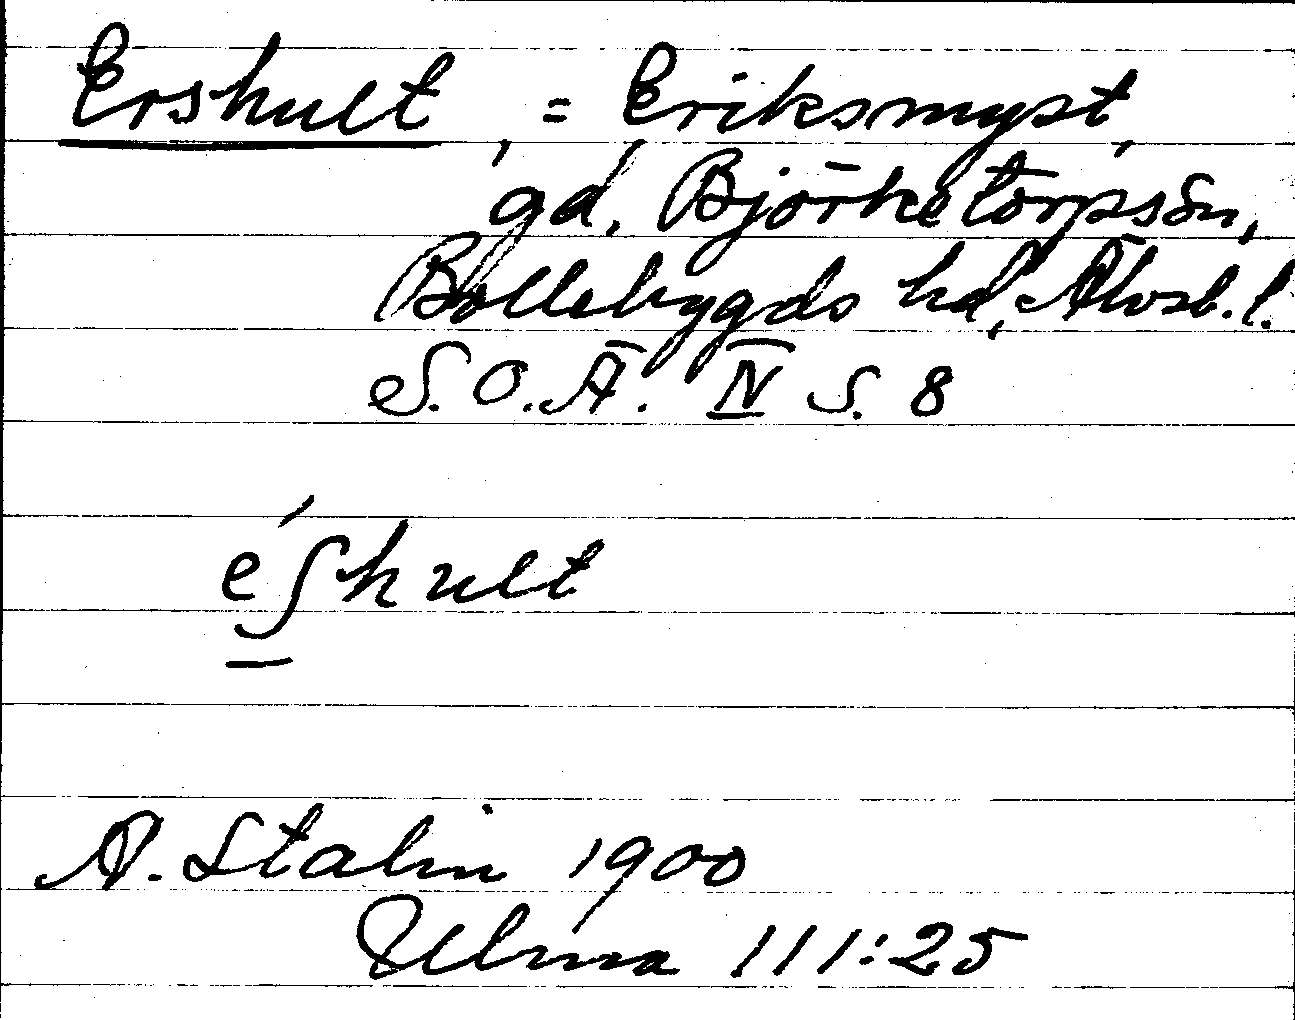 Ershult, = Eriksmyst,
gd, Björketorps sn,
Bollebygds hd, Älvsb. l.
S. O. Ä. IV S. 8
é∫hult
A. Stalin 1900
Ulma 111:25